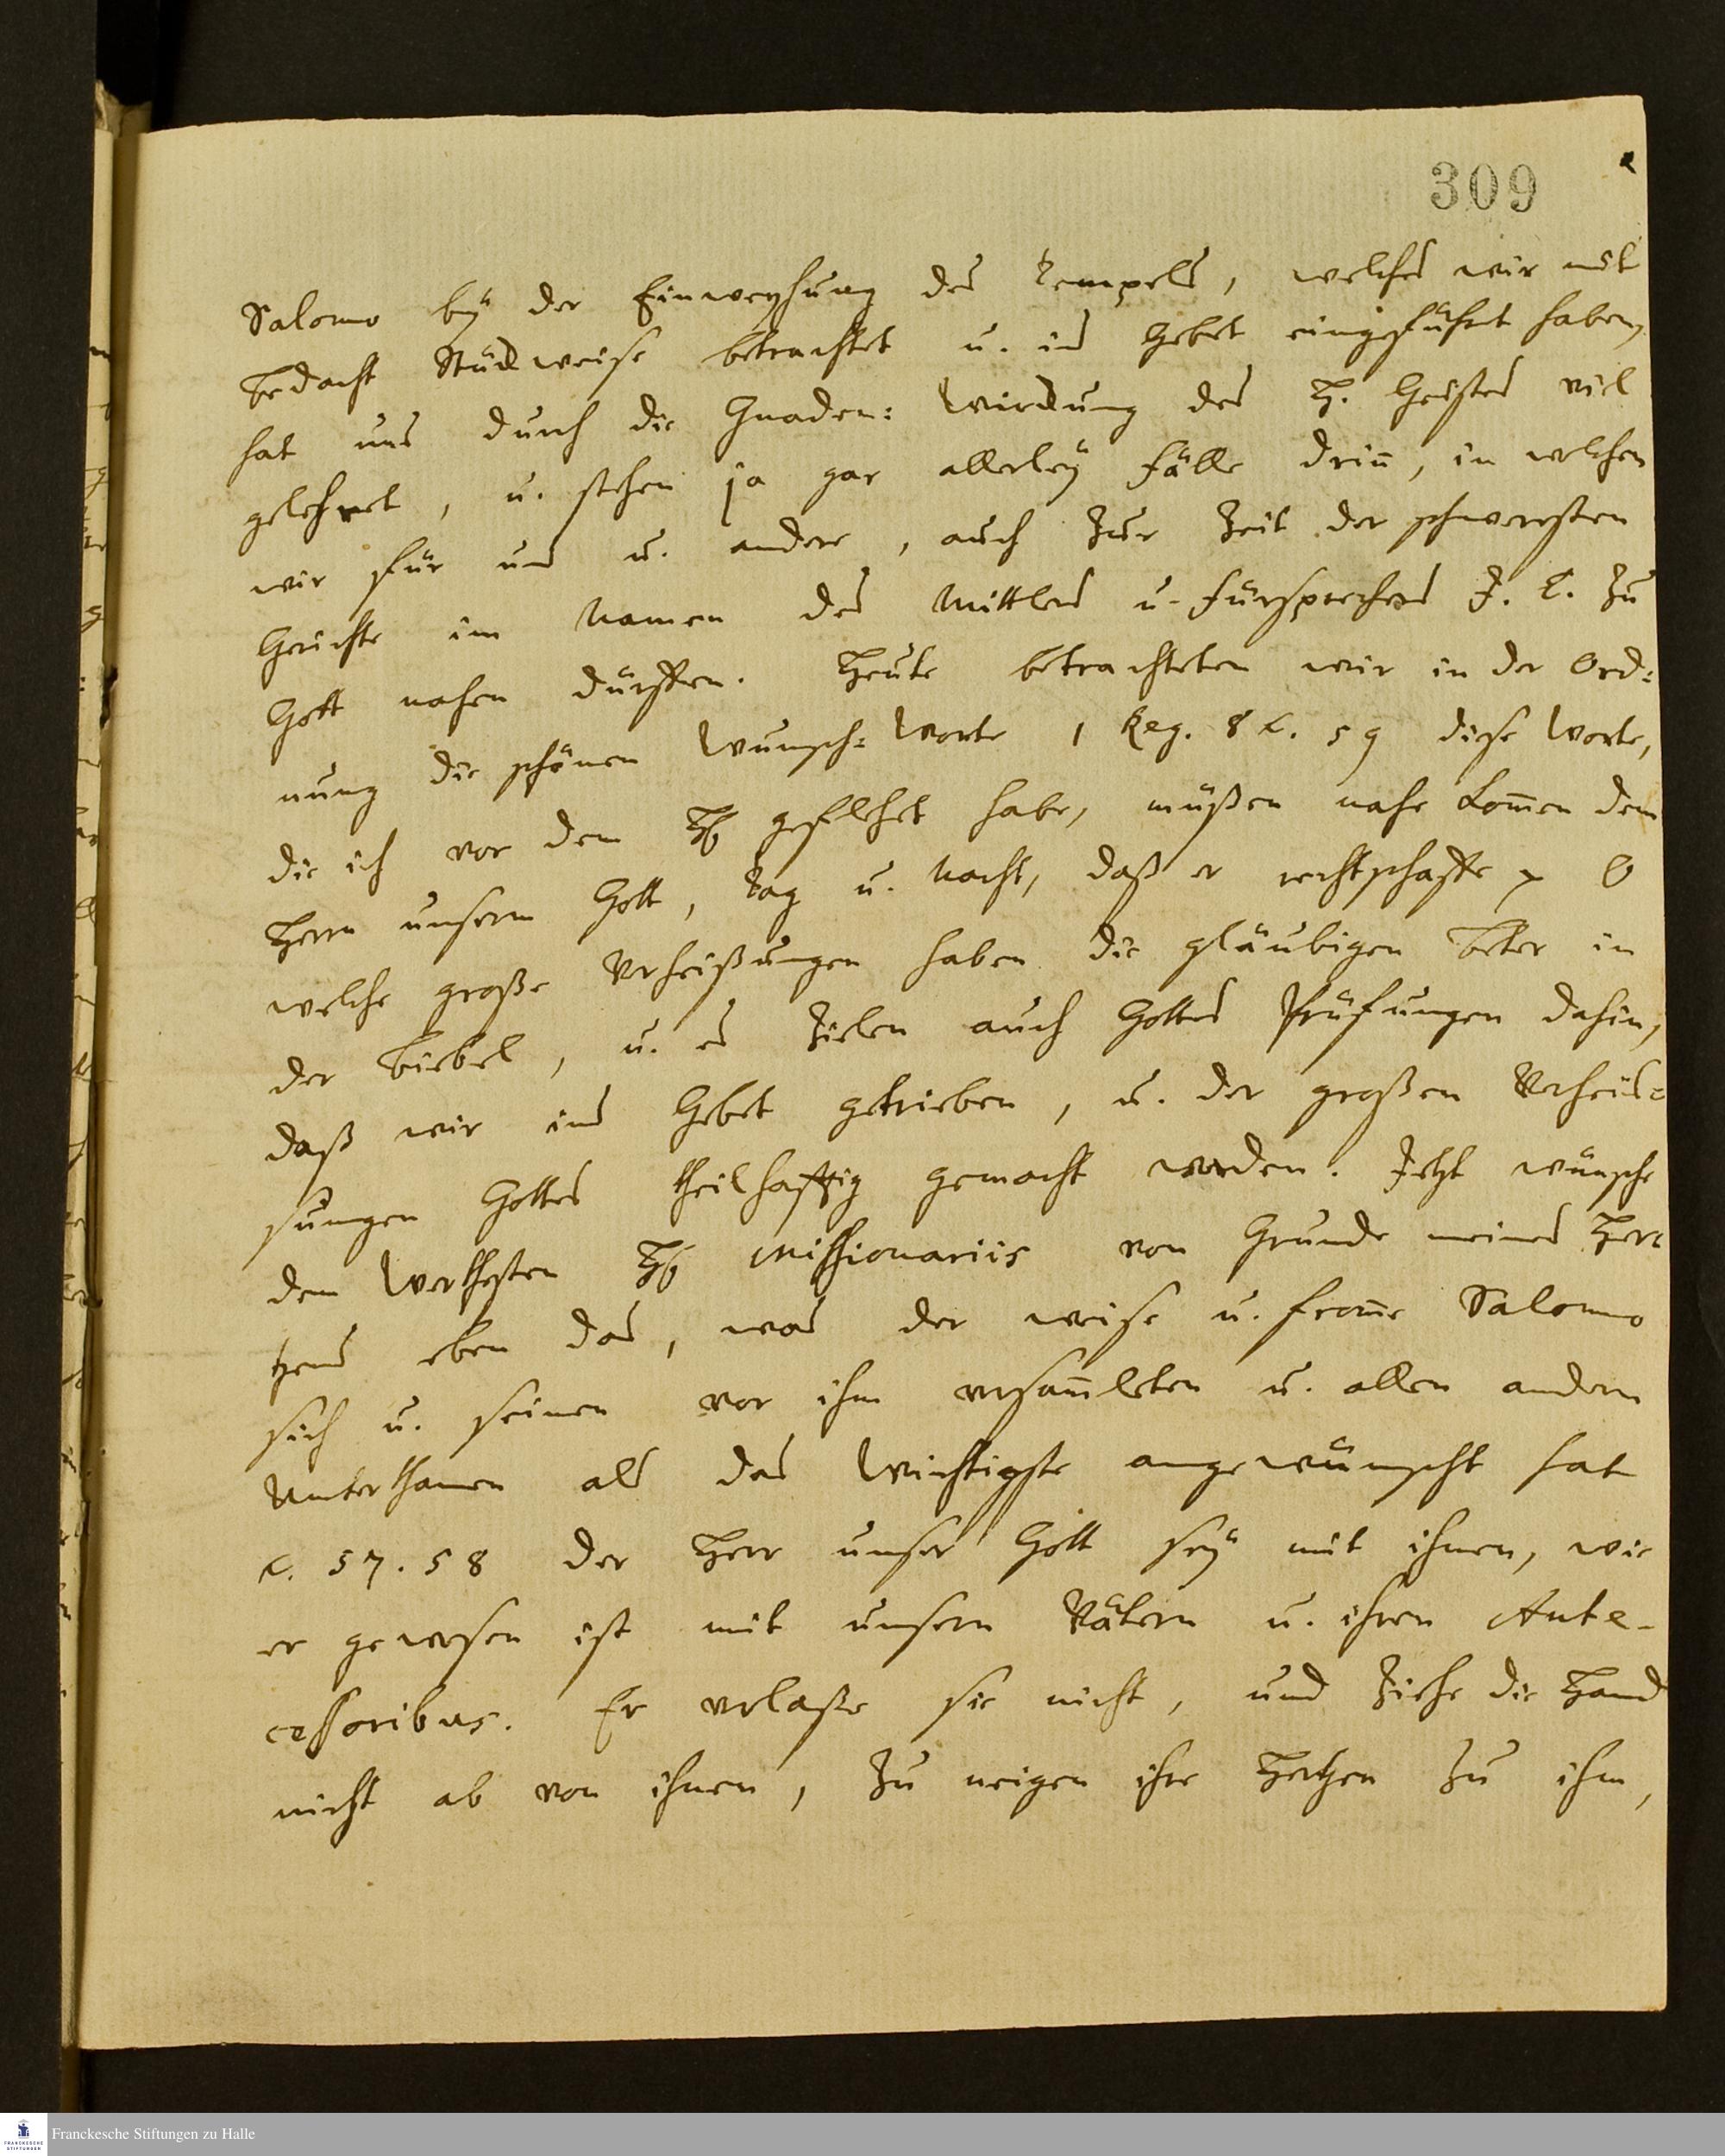 309
Salomo bey der Einweyhung des Tempels, welches wir mit
bedacht Stückweise betrachtet u. ins Gebet eingeführt haben,
hat uns durch die Gnaden: Wirckung des H. Geistes viel
gelehret, u. stehen ja gar allerley Fälle drin̄, in welchen
wir für uns u. andere, auch zur Zeit der schweresten
Gerichte im Namen des Mittlers u. Fürsprechers J. C. zu
Gott nahen dürffen. Heute betrachteten wir in der Ord:
nung die schönen Wunsch: Worte 1 Reg. 8 v. 59 diese Worte,
die ich vor dem HE geflehet habe, müßen nahe kom̄en dem
Herrn unserm Gott, Tag u. Nacht, daß er rechtschaffe p O
welche große Verheißungen haben die gläubigen Beter in
der Biebel, u. es zielen auch Gottes Prüfungen dahin,
daß wir ins Gebet getrieben, u. der großen Verheis:
sungen Gottes theilhafftig gemacht werden. Jetzt wünsche
den Werthesten HE Missionariis von Grunde meines Her:
tzens eben das, was der weise u. from̄e Salomo
sich u. seinen vor ihm versam̄leten u. allen andern
Unterthanen als das Wichtigste angewünscht hat
v. 57. 58 der Herr unser Gott sey mit ihnen, wie
er gewesen ist mit unsern Vätern u. ihren Ante-
cessoribus. Er verlaße sie nicht, und ziehe die Hand
nicht ab von ihnen, zu neigen ihre Hertzen zu ihm,
FRANCKESCHE STIFTUNGEN
Franckesche Stiftungen zu Halle